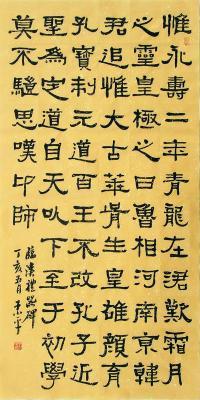 惟永壽二年青龍在涒歎霜月
之靈皇極之日魯相河南京韓
君追惟大古華胥生皇雄顏育
孔寶制元道百王不改孔子近
聖為定道自天以下至于初學
莫不驖思嘆卬師
臨漢禮器碑
丁亥五月